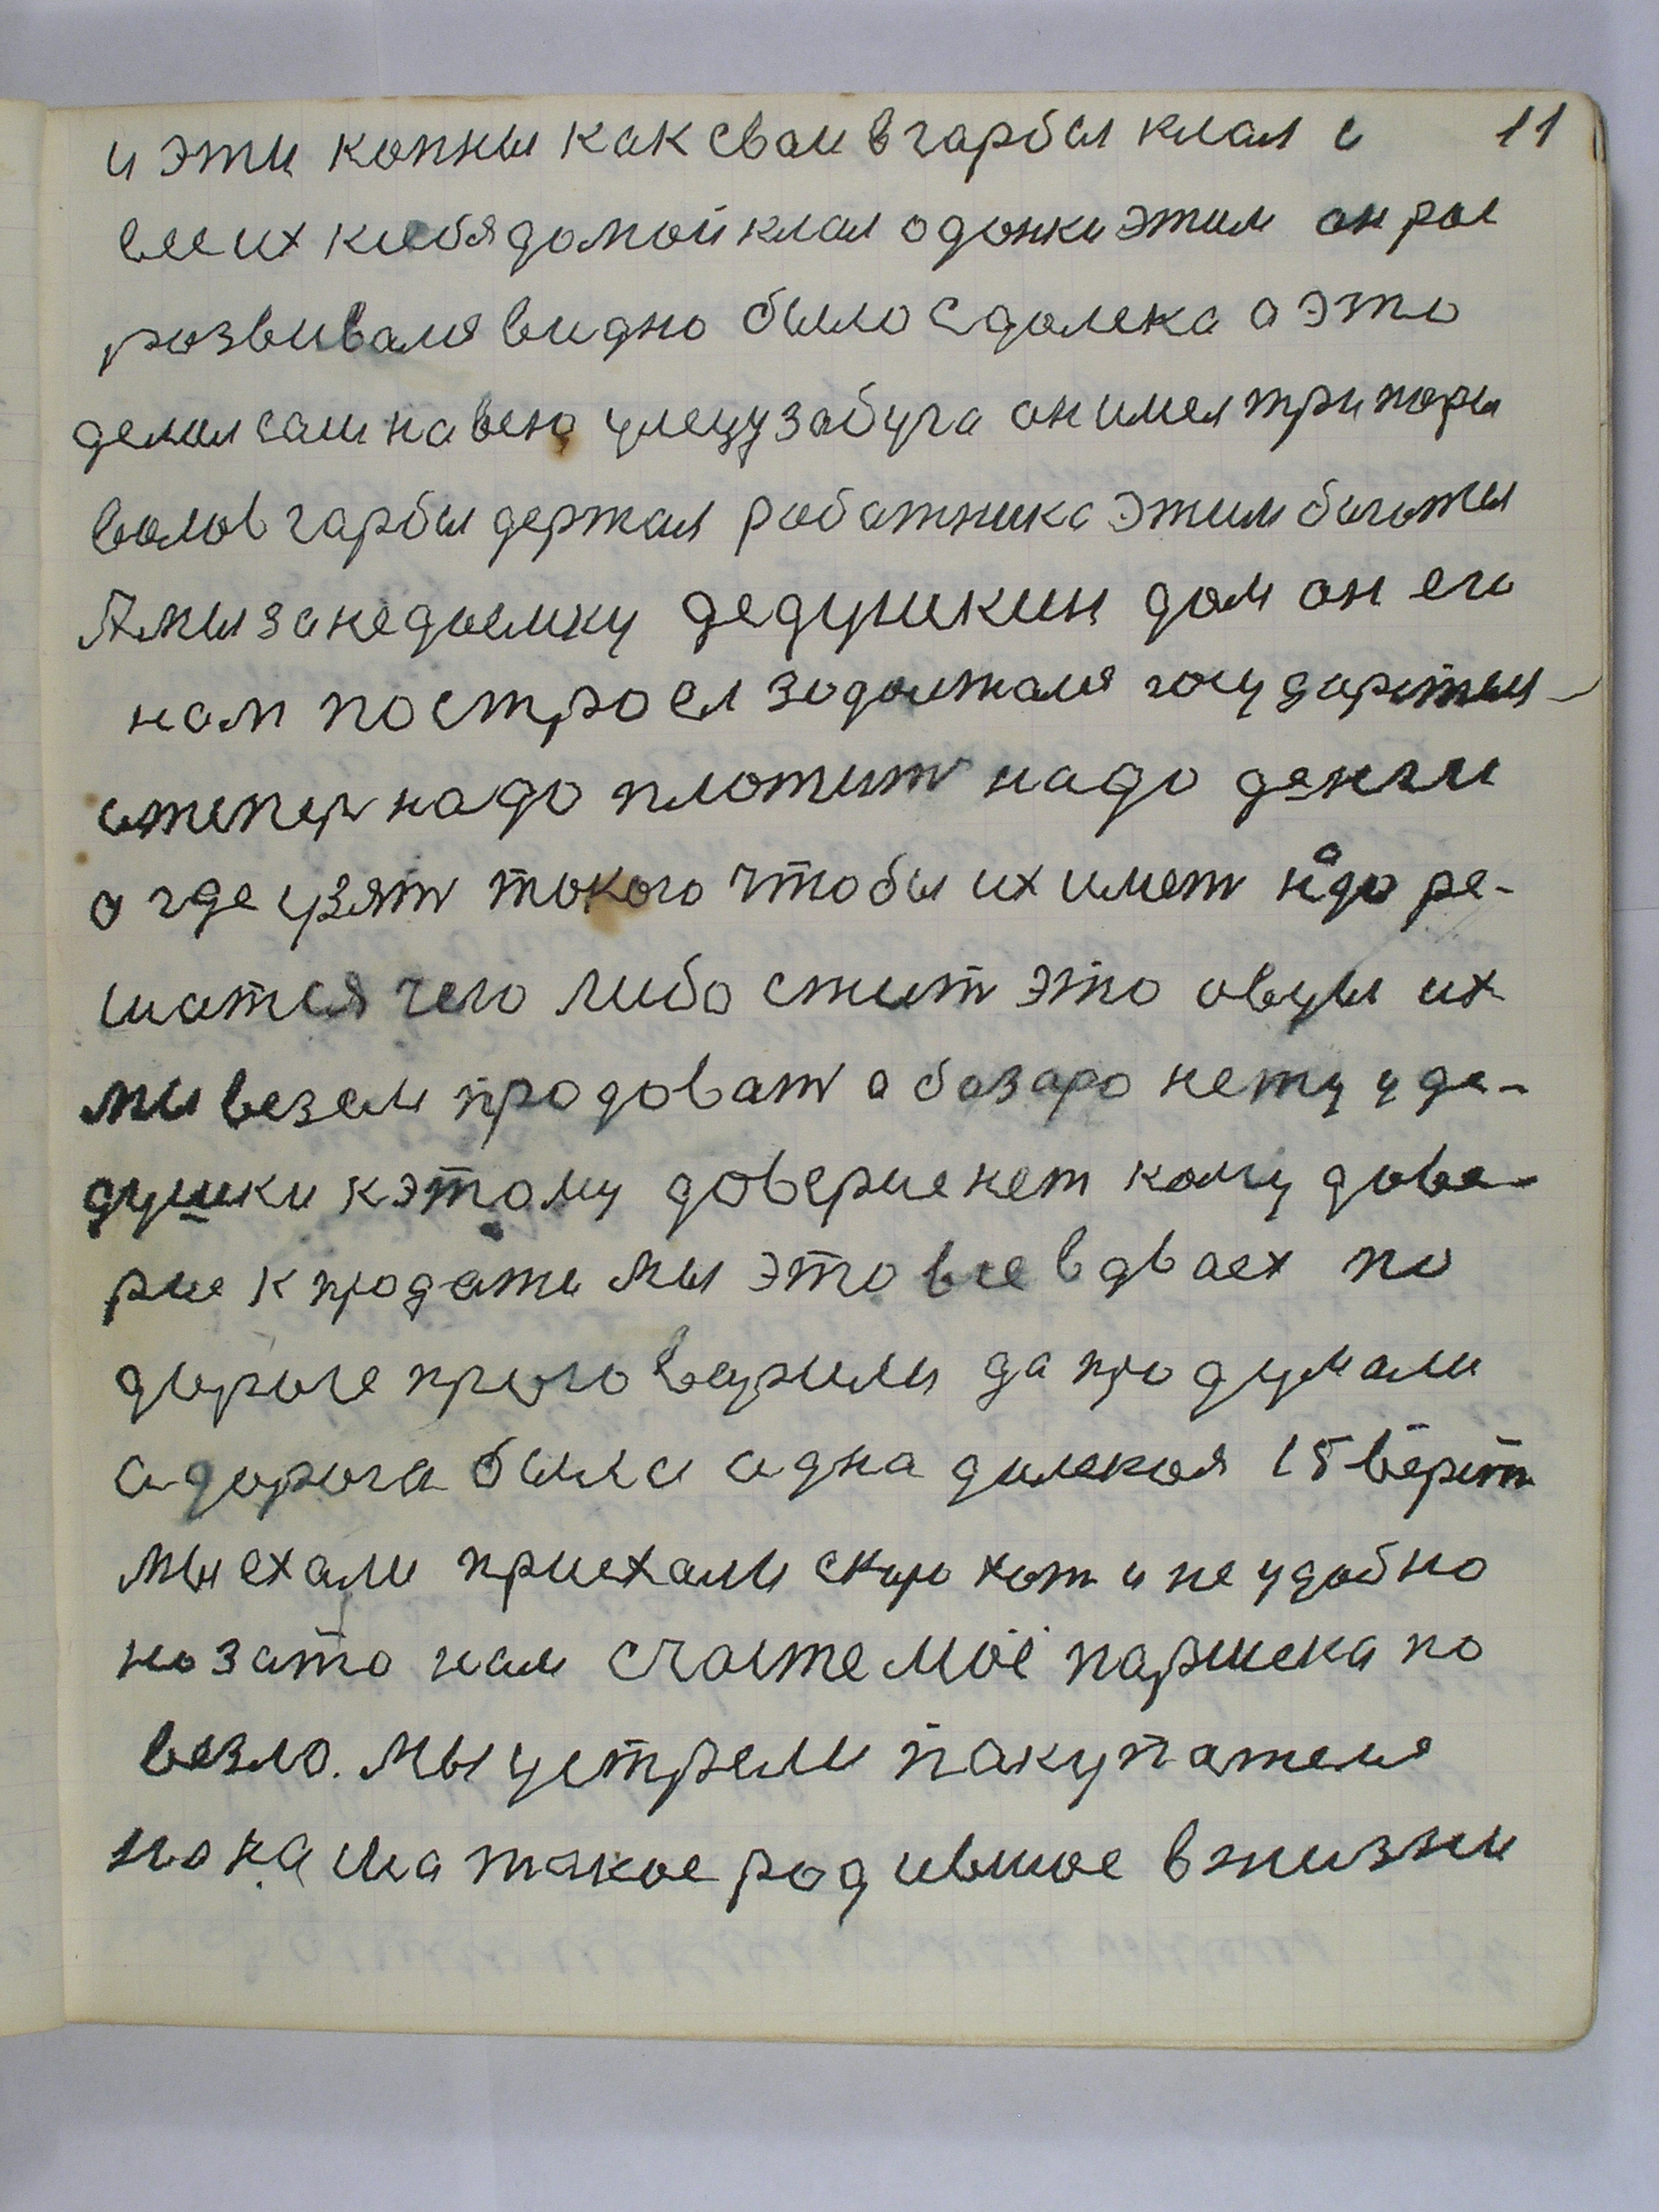 и эти копны как сваи в гарбы клал и 11
все их ксебя домой клал одонки этим он рос
розвивался видно было сдолека а это
делал сам на всю улецу забуга он имел три пары
волов гарбы держал работника этим богаты
А мы за недоимку дедушкин дом он его
нам построел зодолжался государствы
и тепер надо плотит надо деньги
а где узят токого чтобы их имет надо ре-
шатся чего либо стит это овцы их
мы везем продоват а базара нету у де-
душки кэтому доверие нет кому дове-
рие к продати мы это все вдваех по
дороге проговарили да продумали
а дорога была адна далекая 15 вёрст
мы ехали приехали скоро хот и не удобно
но зато нам счасте моё паршека по
везло. мы устрели пакупателя
но на такое родившое в жизни